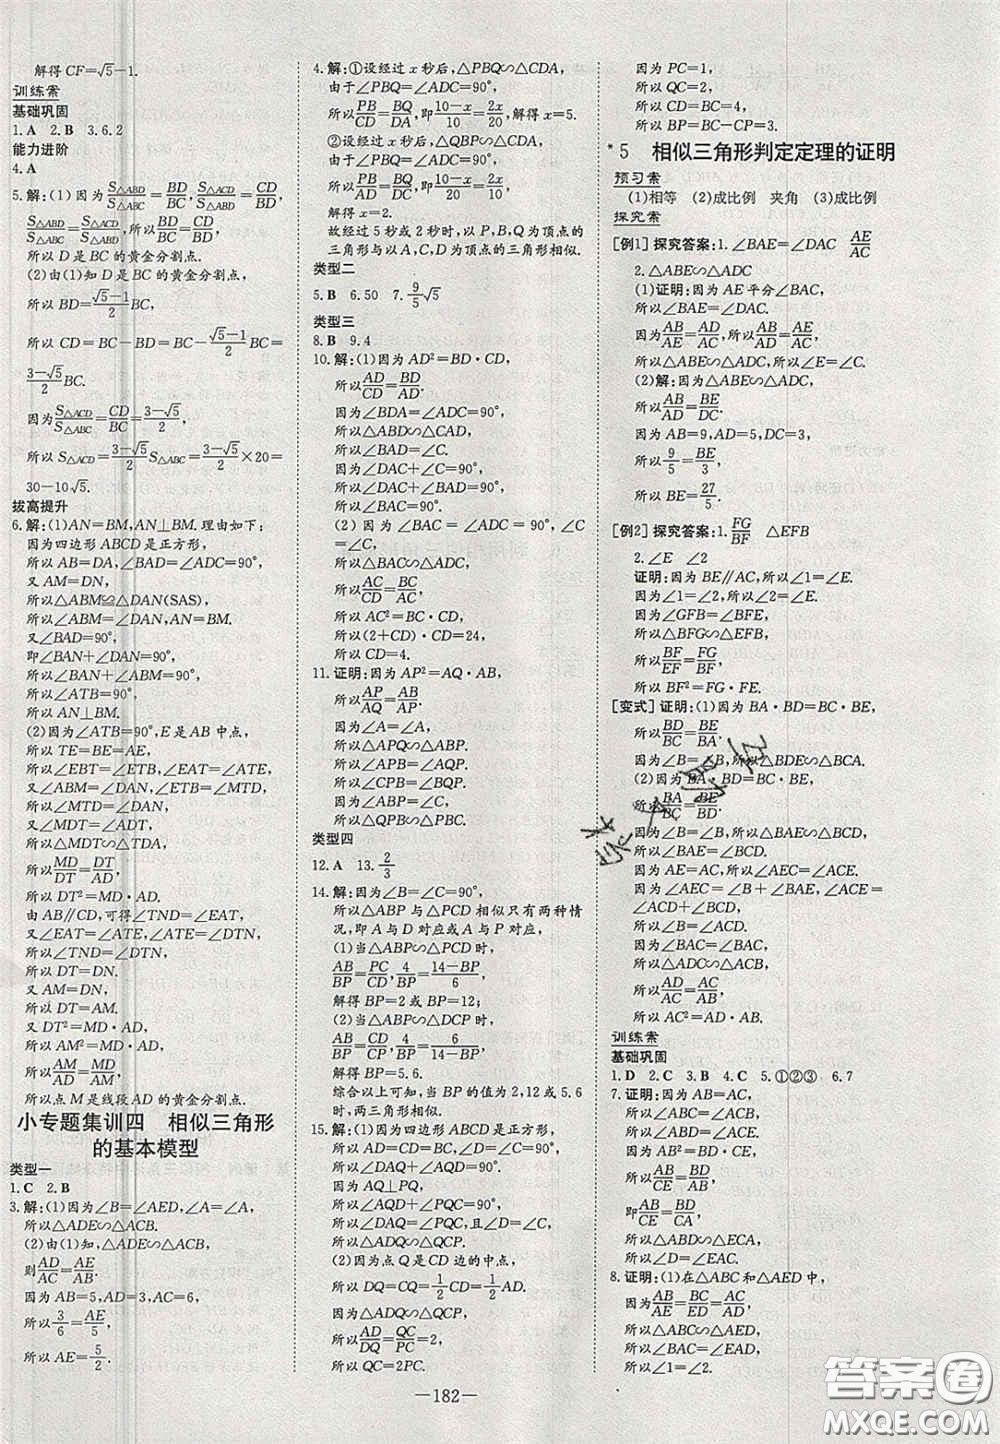 解得 CF=√5-1.
训练案
基础巩固
1.A 2.B 3.6.2
能力进阶
4.A
5.解:(1)因为S△ABD/S△ABC=BD/BC,S△ACD/S△ABD=CD/BD,
S△ABD/S△ABC=S△ACD/S△ABD,所以BD/BC=CD/BD.
所以 D 是 BC 的黄金分割点.
(2)由(1)知 D 是 BC 的黄金分割点,
所以 BD=(√5-1)/2 BC,
所以 CD=BC-BD=BC-(√5-1)/2 BC=
(3-√5)/2 BC.
因为S△ACD/S△ABC=CD/BC=(3-√5)/2,
所以 S△ACD=(3-√5)/2 S△ABC=(3-√5)/2×20=
30-10√5.
拔高提升
6.解:(1)AN=BM,AN⊥BM.理由如下:
因为四边形 ABCD 是正方形,
所以 AB=DA,∠BAD=∠ADC=90°,
又 AM=DN,
所以△ABM≌△DAN(SAS).
所以∠ABM=∠DAN,AN=BM.
又∠BAD=90°,
即∠BAN+∠DAN=90°,
所以∠BAN+∠ABM=90°.
所以∠ATB=90°,
所以 AN⊥BM.
(2)因为 E 是 AB 中点,
所以 TE=BE=AE,
所以∠EBT=∠ETB,∠EAT=∠ETA,
又∠ABM=∠DAN,∠ETB=∠DTN,
所以∠MTD=∠DAN,
又∠MDT=∠ADT,
所以△MDT∽△TDA,
所以MD/DT=DT/AD,
所以 DT²=MD·AD.
由 AB∥CD,可得∠TND=∠EAT,
又∠EAT=∠ATE,∠ATE=∠DTN,
所以∠TND=∠DTN,
所以 DT=DN.
所以 DT=AM.
又 DT²=MD·AD,
所以 AM²=MD·AD.
所以AM/AD=MD/AM.
所以点 M 是线段 AD 的黄金分割点.
小专题集训四 相似三角形
的基本模型
类型一
1.C 2.B
3.解:(1)因为∠B=∠AED,∠A=∠A,
所以△ADE∽△ACB.
(2)由(1)知,△ADE∽△ACB,
则AD/AC=AE/AB.
因为 AB=5,AD=3,AC=6,
所以3/6=AE/5,
所以 AE=5/2.
4.解:①设经过 x 秒后,△PBQ∽△CDA,
由于∠PBQ=∠ADC=90°,
所以PB/CD=BQ/DA,即(10-x)/10=2x/20,解得 x=5.
②设经过 x 秒后,△QBP∽△CDA,
由于∠PBQ=∠ADC=90°,
所以PB/DA=BQ/CD,即(10-x)/20=2x/10,
解得 x=2.
故经过 5 秒或 2 秒时,以 P,B,Q 为顶点的
三角形与以 A,C,D 为顶点的三角形相似.
类型二
5.B 6.50 7.9/5√5
类型三
8.B 9.4
10.解:(1)因为 AD²=BD·CD,
所以AD/CD=BD/AD.
因为∠BDA=∠ADC=90°,
所以△ABD∽△CAD,
所以∠BAD=∠C.
因为∠DAC+∠C=90°,
所以∠DAC+∠BAD=90°.
所以∠BAC=90°.
(2)因为∠BAC=∠ADC=90°,∠C
=∠C,
所以△BAC∽△ADC.
所以AC/DC=BC/AC,
所以 AC²=BC·CD.
所以(2+CD)·CD=24,
所以 CD=4.
11.证明:因为 AP²=AQ·AB,
所以AP/AQ=AB/AP.
因为∠A=∠A,
所以△APQ∽△ABP.
所以∠APB=∠AQP.
所以∠CPB=∠BQP.
又∠APQ=∠ABP,
所以△QPB∽△CBP.
类型四
12.A 13.2/3
14.解:因为∠B=∠C=90°,
所以△ABP 与△PCD 相似只有两种情
况,即 A 与 D 对应或 A 与 P 对应.
(1)当△ABP∽△PCD 时,
AB/BP=PC/CD,4/BP=(14-BP)/6,
解得 BP=2或 BP=12;
(2)当△ABP∽△DCP 时,
AB/BP=CD/CP,4/BP=6/(14-BP),
解得 BP=5.6.
综合以上可知,当 BP 的值为 2,12或 5.6
时,两三角形相似.
15.解:(1)因为四边形 ABCD 是正方形,
所以∠ADQ=∠QCP=90°.
所以∠DAQ+∠AQD=90°.
因为 AQ⊥PQ,
所以∠AQD+∠PQC=90°,
所以∠DAQ=∠PQC,且∠ADQ=∠QCP.
所以△ADQ∽△QCP.
(2)因为点 Q 是 CD 边的中点,
所以 DQ=CQ=1/2CD=1/2AD.
因为△ADQ∽△QCP,
所以AD/DQ=QC/PC=2,
所以 QC=2PC.
因为 PC=1,
所以 QC=2,
因为 BC=CD=4,
所以 BP=BC-CP=3.
*5 相似三角形判定定理的证明
预习案
(1)相等 (2)成比例 夹角 (3)成比例
探究案
[例1]探究答案:1.∠BAE=∠DAC AE/AC
2.△ABE∽△ADC
(1)证明:因为 AE 平分∠BAC,
所以∠BAE=∠DAC.
因为AB/AD=AE/AC,所以AB/AE=AD/AC.
所以△ABE∽△ADC,所以∠E=∠C.
(2)解:因为△ABE∽△ADC,
所以AB/AD=BE/DC.
因为 AB=9,AD=5,DC=3,
所以9/5=BE/3,
所以 BE=27/5.
[例2]探究答案:1.FG/BF △EFB
2.∠E ∠2
证明:因为 BE∥AC,所以∠1=∠E.
因为∠1=∠2,所以∠2=∠E.
因为∠GFB=∠BFE,
所以△BFG∽△EFB,
所以BF/EF=FG/BF.
所以 BF²=FG·FE.
[变式]证明:(1)因为 BA·BD=BC·BE,
所以BD/BC=BE/BA.
因为∠B=∠B,所以△BDE∽△BCA.
(2)因为 BA·BD=BC·BE,
所以BA/BC=BE/BD.
因为∠B=∠B,所以△BAE∽△BCD.
所以∠BAE=∠BCD.
因为 AE=AC,所以∠AEC=∠ACE.
因为∠AEC=∠B+∠BAE,∠ACE=
∠ACD+∠BCD,
所以∠B=∠ACD.
因为∠BAC=∠BAC,
所以△ADC∽△ACB,
所以AD/AC=AC/AB,
所以 AC²=AD·AB.
训练案
基础巩固
1.D 2.C 3.B 4.C 5.①②③ 6.7
7.证明:因为 AB=AC,
所以∠ABC=∠ACB,
所以∠ABD=∠ACE.
因为 AC²=BD·CE,
所以AC/CE=BD/AC,
即AB/CE=BD/CA,
所以△ABD∽△ECA,
所以∠D=∠EAC.
8.证明:(1)在△ABC 和△AED 中,
因为AB/AE=BC/ED=AC/AD,
所以△ABC∽△AED,
所以∠BAC=∠EAD.
—182—
答案圈
MXQE.COM